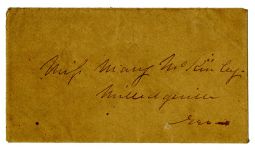 Miss Mary McKinley
Milledgeville
Geo